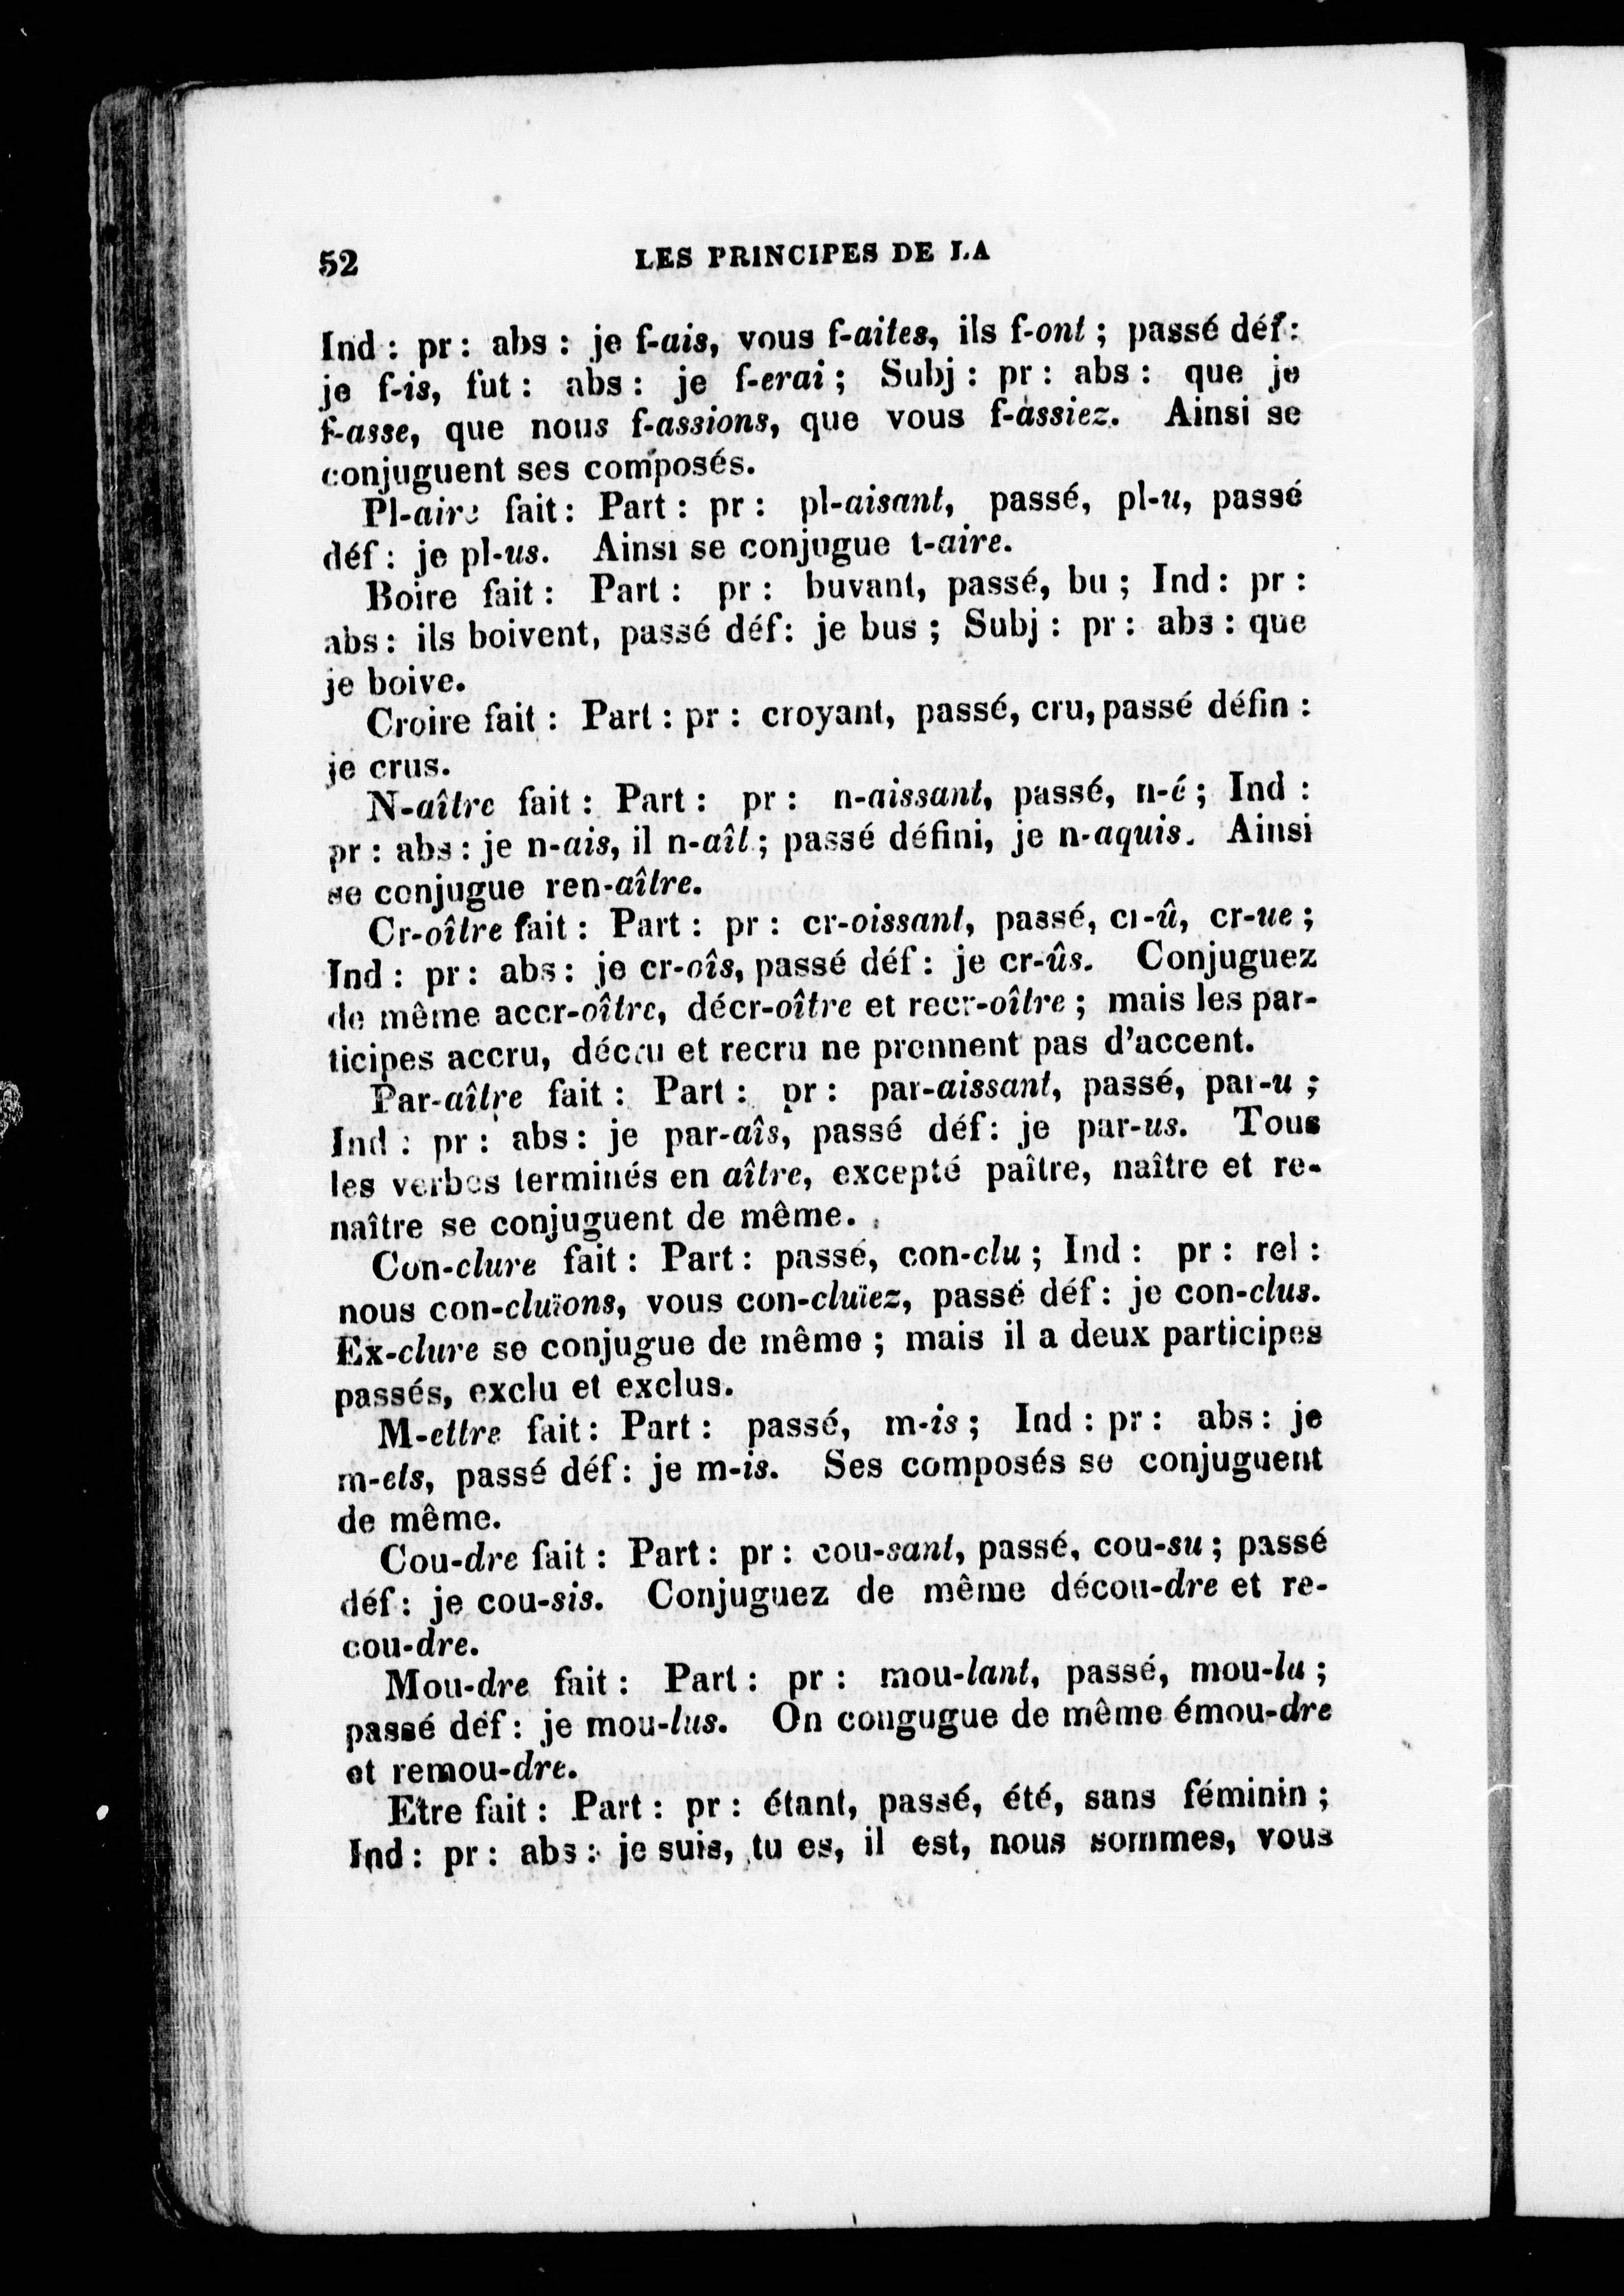 52 LES PRINCIPES DE LA
Ind : pr : abs : je f-ais, vous f-aites, ils f-ont ; passé déf :
je f-is, fut : abs : je f-erai ; Subj : pr : abs : que je
f-asse, que nous f-assions, que vous f-assiez. Ainsi se
conjuguent ses composés.
Pl-aire fait : Part : pr : pl-aisant, passé, pl-u, passé
déf : je pl-us. Ainsi se conjugue t-aire.
Boire fait : Part : pr : buvant, passé, bu ; Ind : pr :
abs : ils boivent, passé déf : je bus ; Subj : pr : abs : que
je boive.
Croire fait : Part : pr : croyant, passé, cru, passé défin :
je crus.
N-aître fait : Part : pr : n-aissant, passé, n-é ; Ind :
pr : abs : je n-ais, il n-aît ; passé défini, je n-aquis. Ainsi
se conjugue ren-aître.
Cr-oître fait : Part : pr : cr-oissant, passé, cr-û, cr-ue ;
Ind : pr : abs : je cr-oîs, passé déf : je cr-ûs. Conjuguez
de même accr-oître, décr-oître et recr-oître ; mais les par-
ticipes accru, décru et recru ne prennent pas d'accent.
Par-aître fait : Part : pr : par-aissant, passé, par-u ;
Ind : pr : abs : je par-aîs, passé déf : je par-us. Tous
les verbes terminés en aître, excepté paître, naître et re-
naître se conjuguent de même.
Con-clure fait : Part : passé, con-clu ; Ind : pr : rel :
nous con-cluïons, vous con-cluïez, passé déf : je con-clus.
Ex-clure se conjugue de même ; mais il a deux participes
passés, exclu et exclus.
M-ettre fait : Part : passé, m-is ; Ind : pr : abs : je
m-ets, passé déf : je m-is. Ses composés se conjuguent
de même.
Cou-dre fait : Part : pr : cou-sant, passé, cou-su ; passé
déf : je cou-sis. Conjuguez de même décou-dre et re-
cou-dre.
Mou-dre fait : Part : pr : mou-lant, passé, mou-lu ;
passé déf : je mou-lus. On congugue de même émou-dre
et remou-dre.
Etre fait : Part : pr : étant, passé, été, sans féminin ;
Ind : pr : abs : je suis, tu es, il est, nous sommes, vous